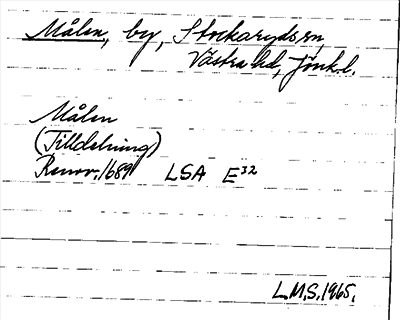 Målen, by, Stockaryds sn,
Västra hd, Jönk. l.
Målen
(Tilldelning)
Renov. 1689 LSA E³²
L.M.S. 1965.